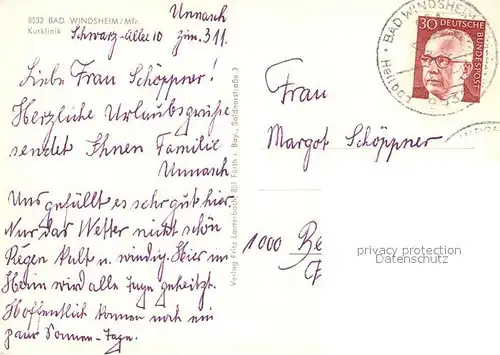 8532 BAD WINDSHEIM/Mfr.
Kurklinik
Unnasch
Schwarz-Allee 10 Zim. 311.
Liebe Frau Schöppner!
Herzliche Urlaubsgrüße
sendet Ihnen Familie
Unnasch
Uns gefüllt es sehr gut hier
Nur das Wetter nicht schön
Regen kalt u. windig. Hier im
Heim wird alle Tage geheitzt.
Hoffentlich kommen noch ein
paar Sonnen-Tage.
Verlag Fritz Lauterbach 851 Fürth i. Bay., Soldnerstraße 3
30 DEUTSCHE
BUNDESPOST
BAD WINDSHEIM
Heilbad
Frau
Margot Schöppner
1000 Be
privacy protection
Datenschutz